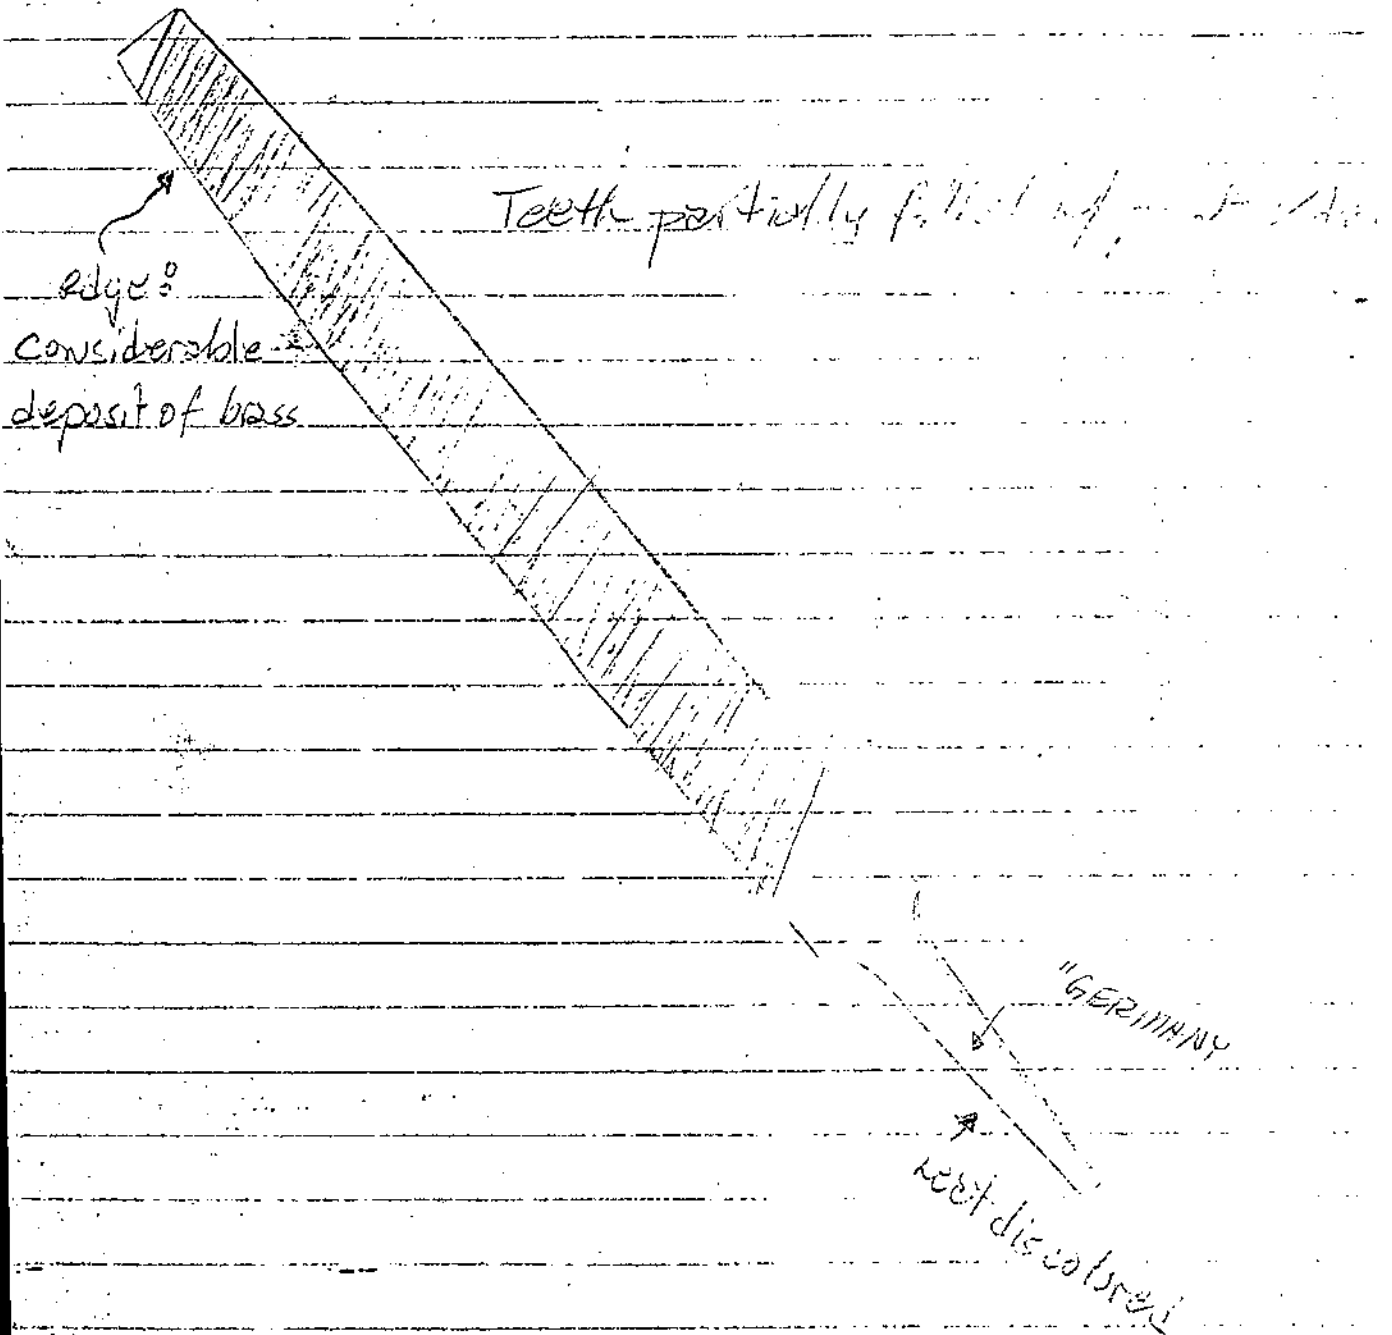 Teeth partially
edge:
considerable
deposit of brass
"GERMANY
discolored